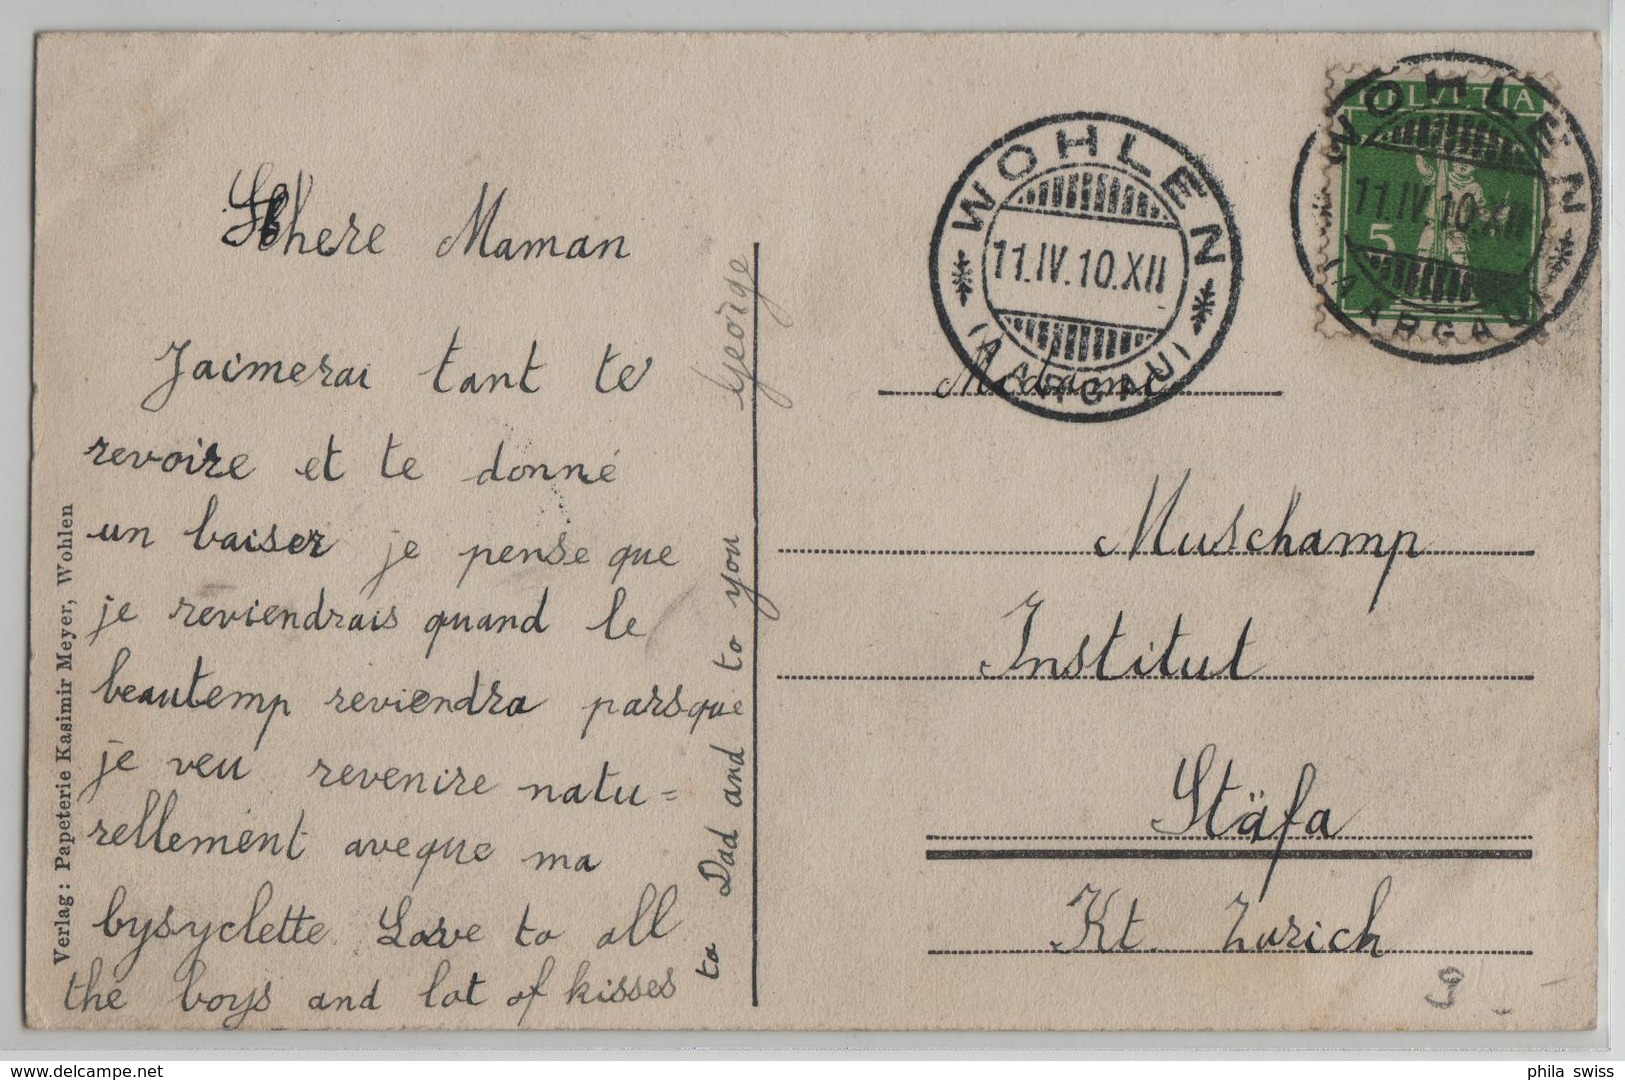 Chere Maman
Jaimerai tant te
revoire et te donné
un baiser je pense que
je reviendrais quand le
beautemp reviendra parsque
je veu revenire natu=
rellement aveque ma
bysyclette. Love to all
the boys and lot of kisses
to Dad and to you George
Verlag: Papeterie Kasimir Meyer, Wohlen
WOHLEN
11.IV.10.XII
(AARGAU)
HELVETIA
5
WOHLEN
11.IV.10.XII
(AARGAU)
Madame
Muschamp
Institut
Stäfa
Kt. Zurich
delcampe.net
phila swiss